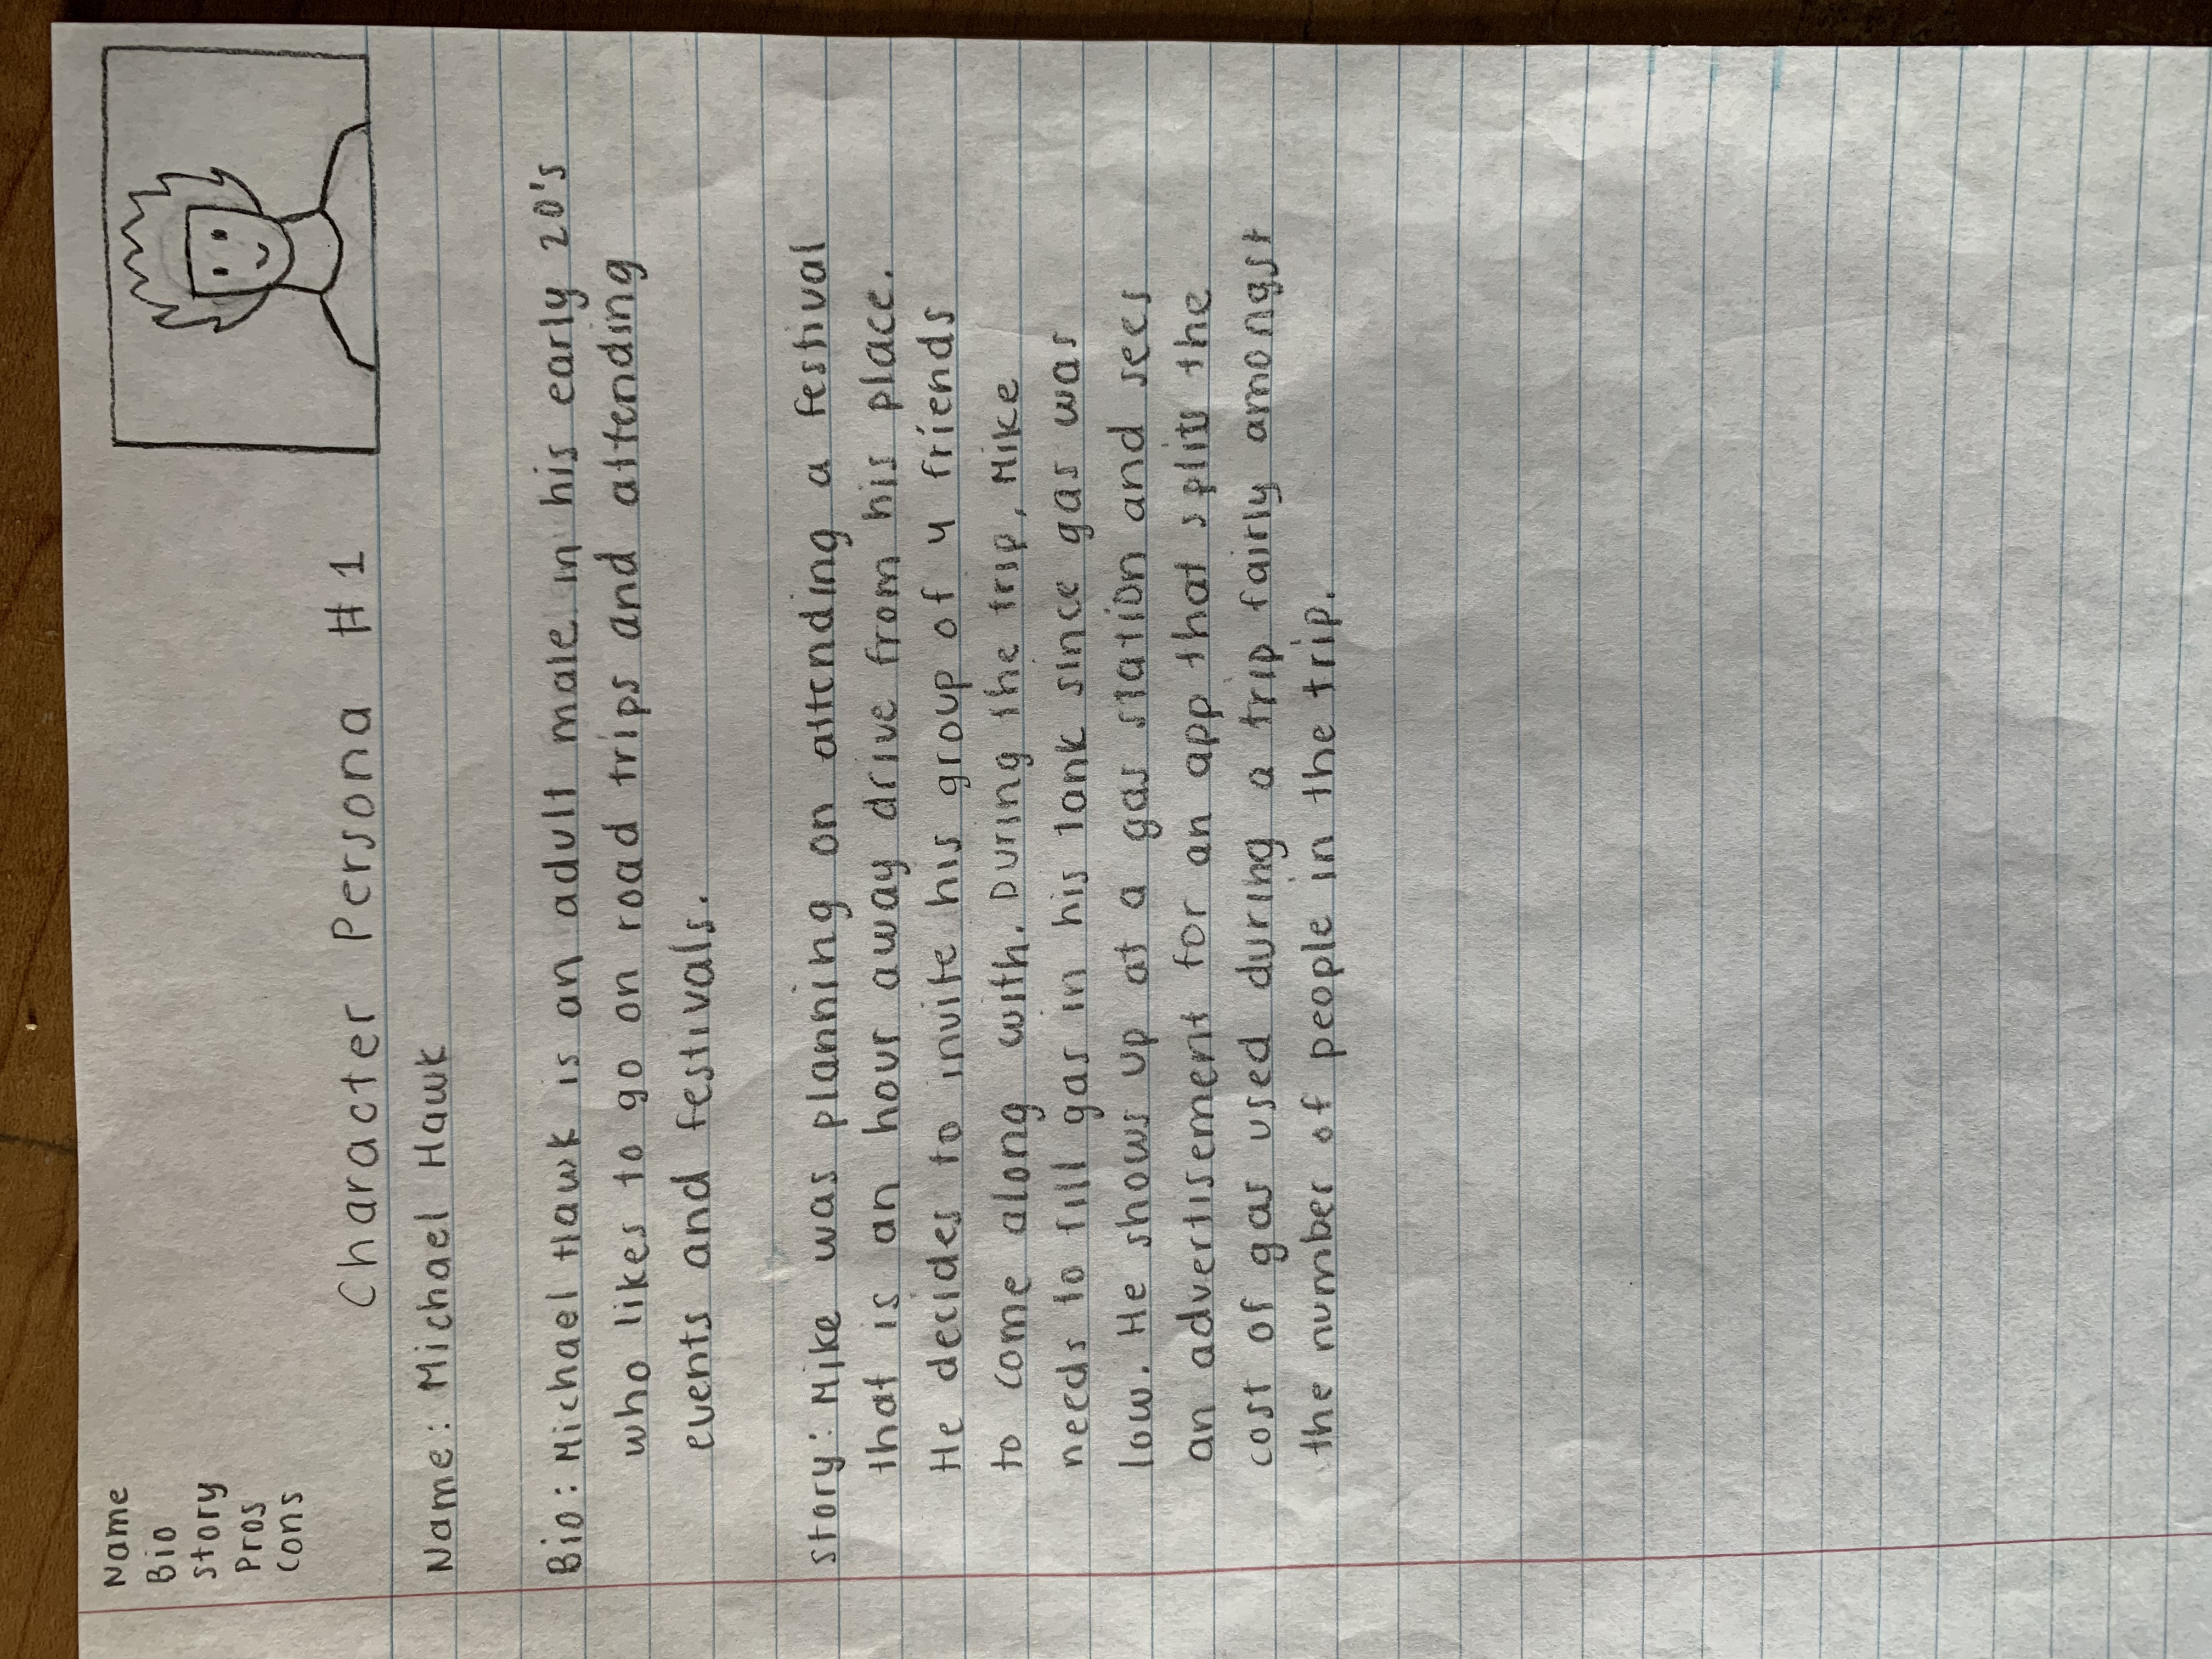 Name
Bio
Story
Pros
Cons
Character Persona #1
Name: Michael Hawk
Bio: Michael Hawk is an adult male in his early 20's
who likes to go on road trips and attending
events and festivals.
Story: Mike was planning on attending a festival
that is an hour away drive from his place.
He decides to invite his group of 4 friends
to come along with. During the trip, Mike
needs to fill gas in his tank since gas was
low. He shows up at a gas station and sees
an advertisement for an app that splits the
cost of gas used during a trip fairly amongst
the number of people in the trip.